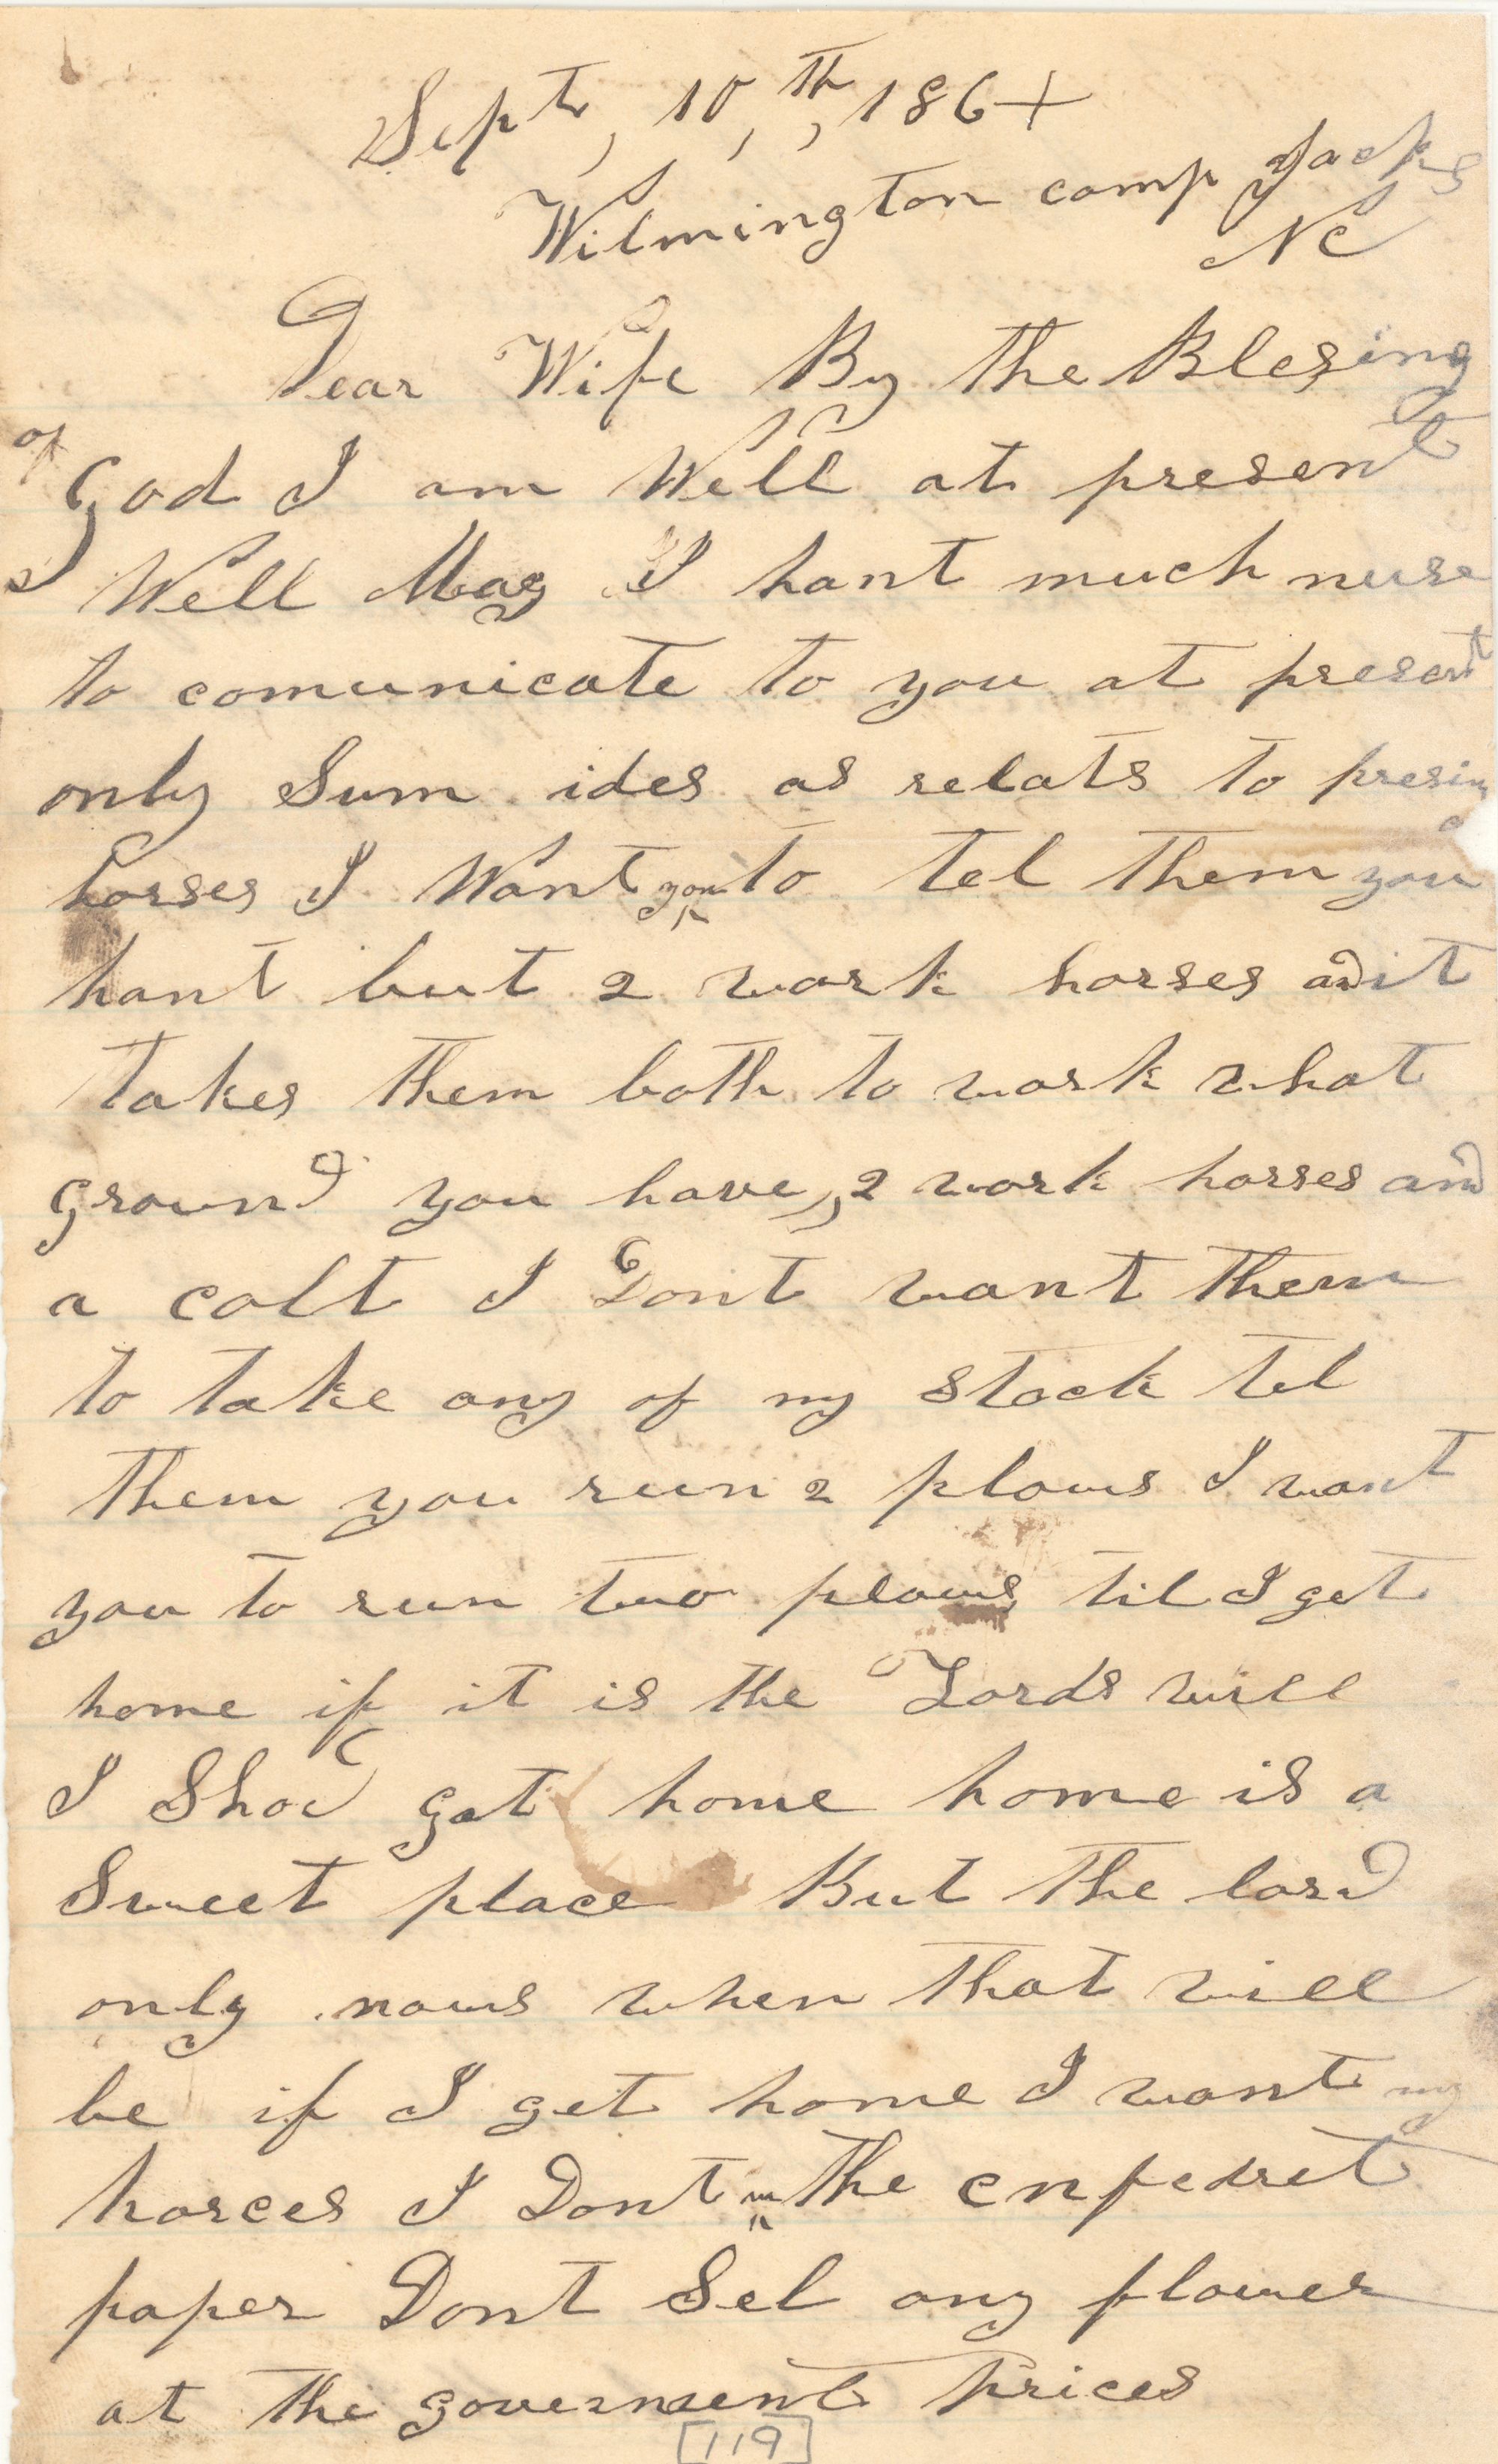 Sept, 10,th, 1864
Wilmington camp Jacks
NC
Dear Wife By the Blesing
of God I am Well at present
Well Mag I hant much nuse
to comunicate to you at present
only Sum ides as relats to presing
horses I Want you to tel them you
hant but 2 work horses and it
takes them both to work what
ground you have, 2 work horses and
a colt I Dont want them
to take any of my stock tel
them you run 2 plows I want
you to run two plows til I get
home if it is the Lords will
I Shod get home home is a
Sweet place But the lord
only nows when that will
be if I get home I want my
horces I Dont the cnfedret
paper Dont Sel any flower
at the goverment prices
[119]